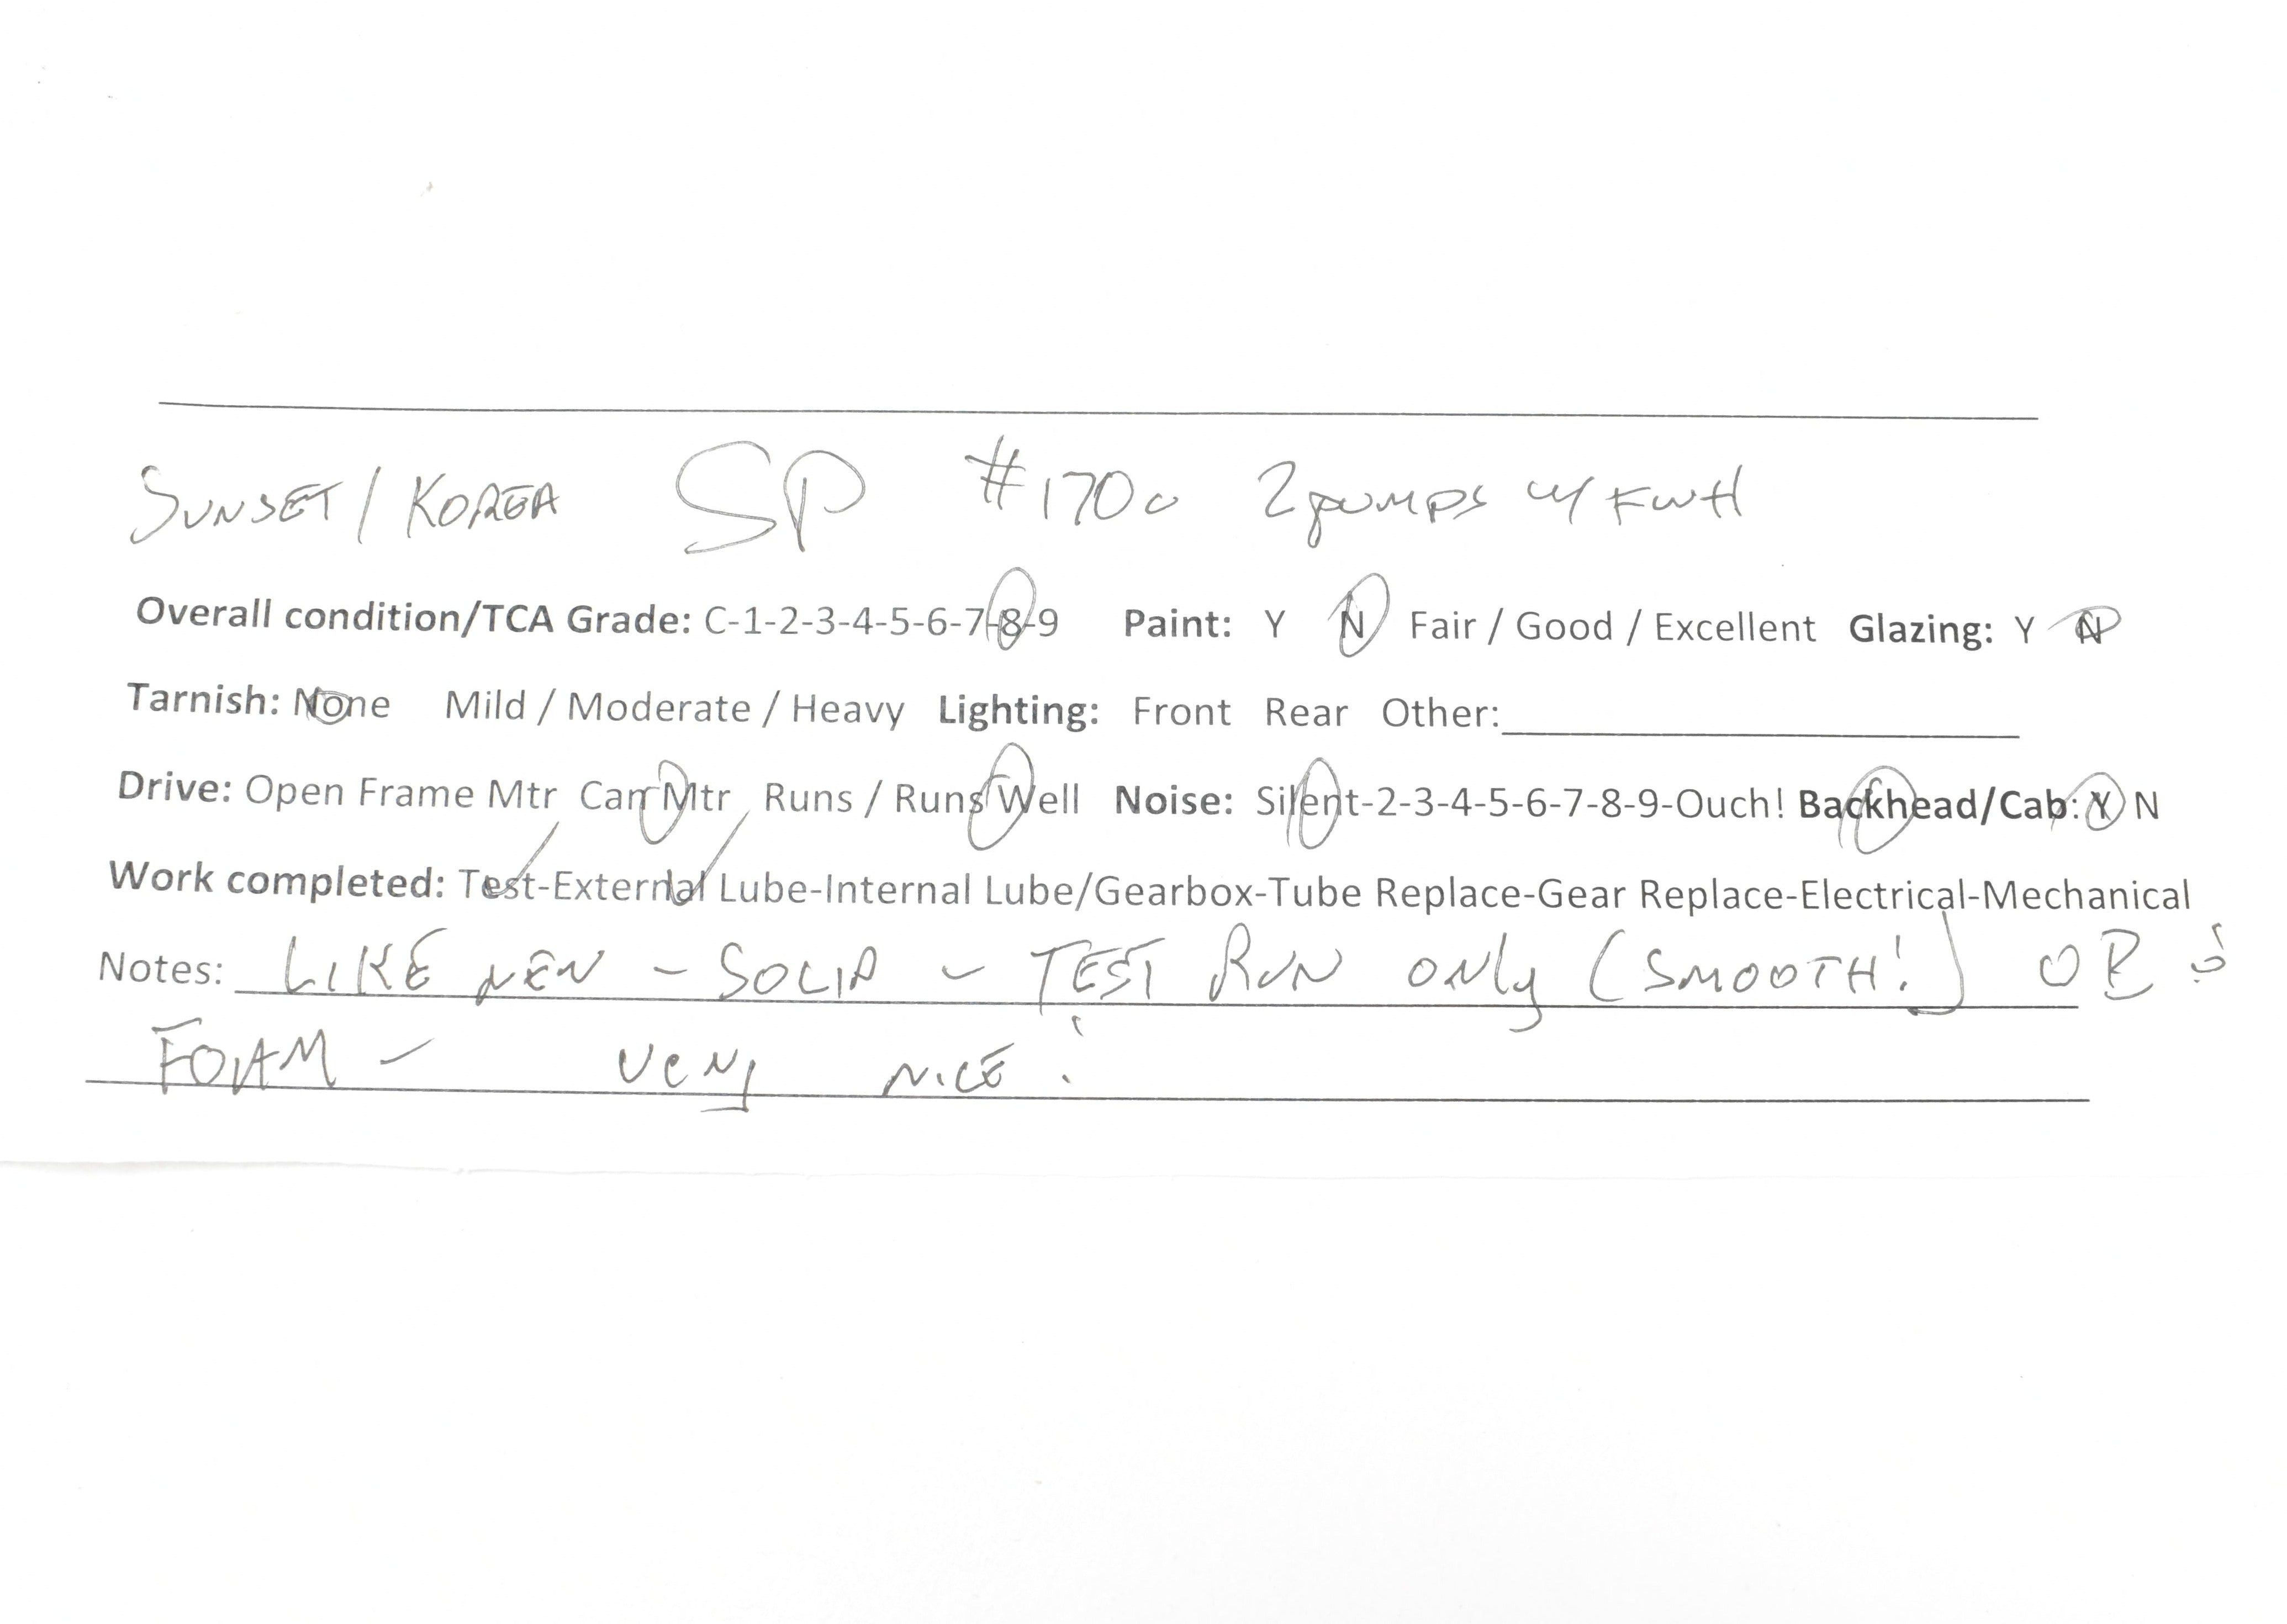 SUNSET / KOREA SP #1700 2 pumps w/ FWH
Overall condition/TCA Grade: C-1-2-3-4-5-6-7-8-9 Paint: Y N Fair / Good / Excellent Glazing: Y N
Tarnish: None Mild / Moderate / Heavy Lighting: Front Rear Other:
Drive: Open Frame Mtr Can Mtr Runs / Runs Well Noise: Silent-2-3-4-5-6-7-8-9-Ouch! Backhead/Cab: Y N
Work completed: Test-External Lube-Internal Lube/Gearbox-Tube Replace-Gear Replace-Electrical-Mechanical
Notes: LIKE NEW - SOLID - TEST RUN ONLY (SMOOTH!) OB &
FOAM - VERY NICE!